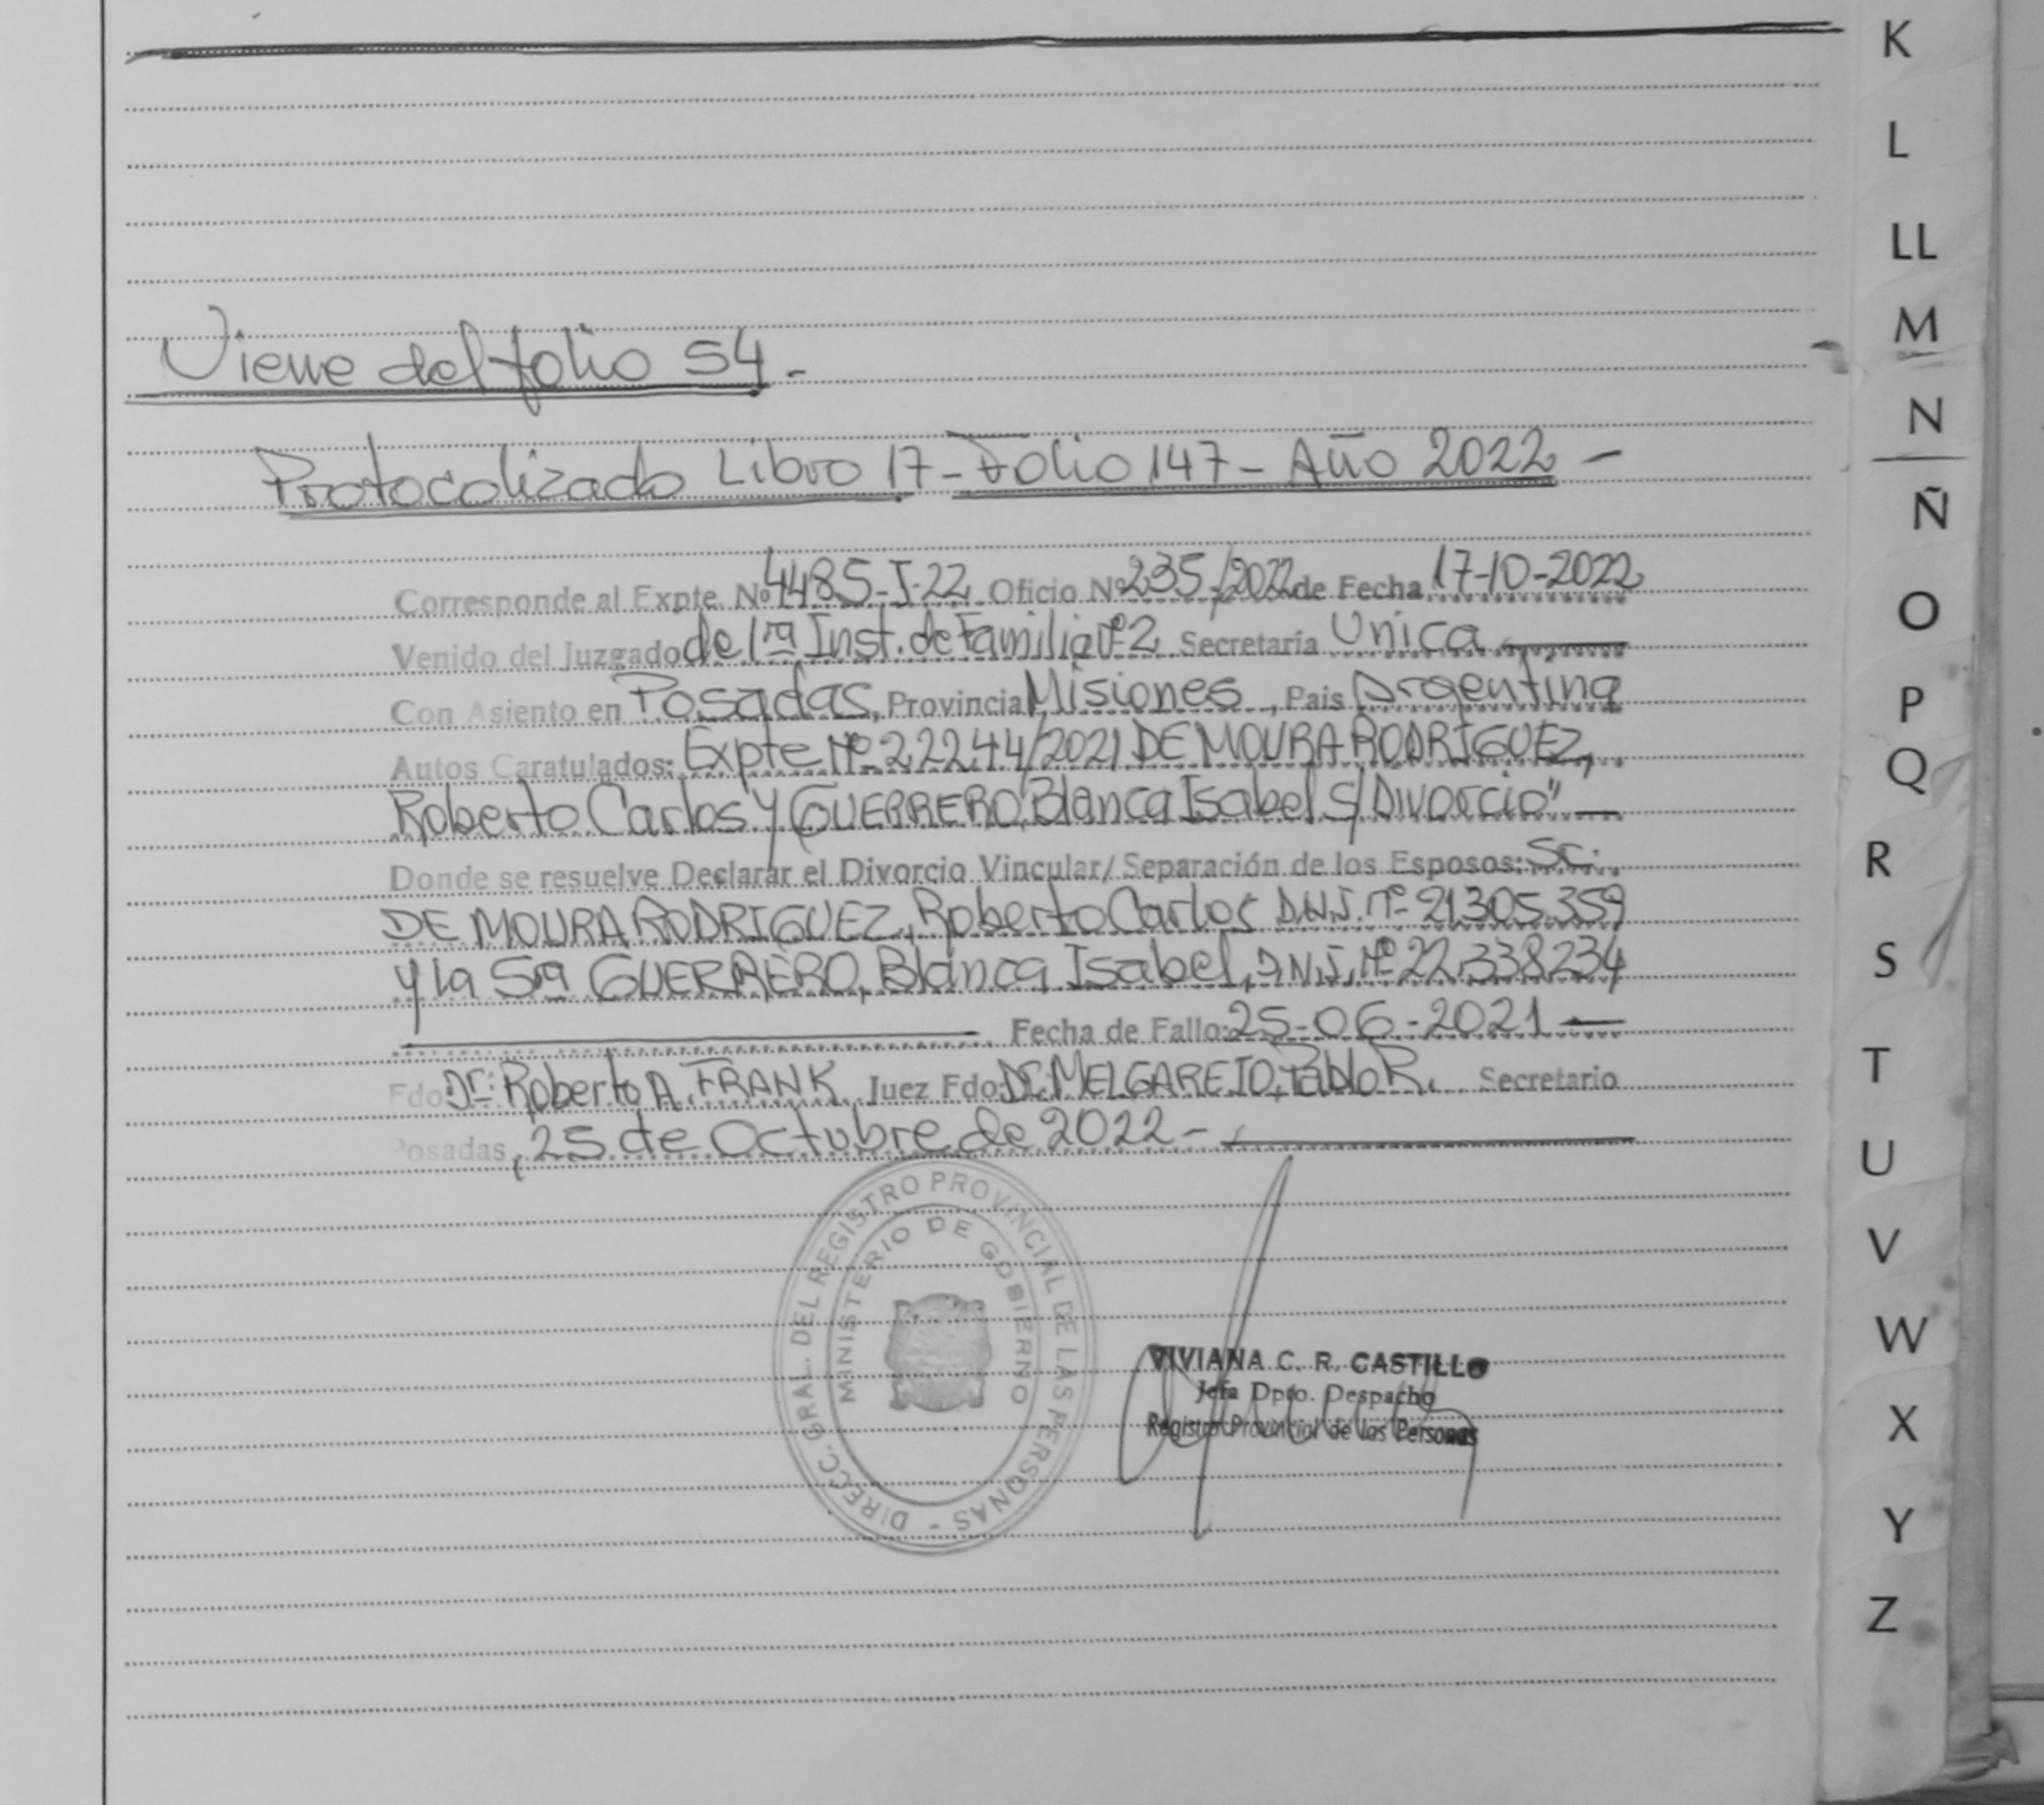 Viene del folio 54.-
Protocolizado Libro 17-Folio 147-Año 2022-
Corresponde al Expte. Nº 4485-I-22 Oficio Nº 235/2022 de Fecha 17-10-2022
Venido del Juzgado de 1ra Inst. de Familia Nº2 Secretaría Unica
Con Asiento en Posadas, Provincia Misiones, Pais Argentina
Autos Caratulados: Expte Nº 22244/2021 DE MOURA RODRIGUEZ,
Roberto Carlos y GUERRERO, Blanca Isabel S/Divorcio"
Donde se resuelve Declarar el Divorcio Vincular/ Separación de los Esposos: Sr.
DE MOURA RODRIGUEZ, Roberto Carlos D.N.I. Nº 21.305.359
y la Sra GUERRERO, Blanca Isabel, D.N.I. Nº 22.338.234
Fecha de Fallo: 25-06-2021
Fdo Dr. Roberto A. FRANK Juez Fdo: Dr. MELGAREJO, Pablo R. Secretario
Posadas, 25 de Octubre de 2022-
DIRECC. GRAL. DEL REGISTRO PROVINCIAL DE LAS PERSONAS -
MINISTERIO DE GOBIERNO
VIVIANA C. R. CASTILLO
Jefa Dpto. Despacho
Registro Provincial de las Personas
K
L
LL
M
N
Ñ
O
P
Q
R
S
T
U
V
W
X
Y
Z